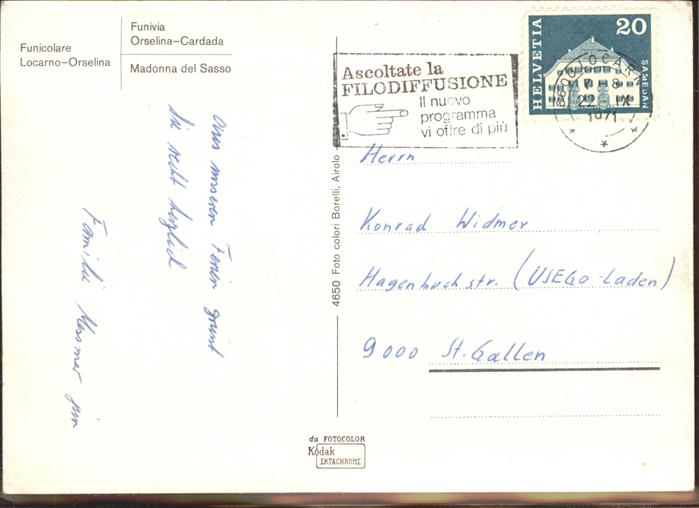 Funicolare
Locarno-Orselina
Funivia
Orselina-Cardada
Madonna del Sasso
Aus unseren Ferien grüsst
Sie recht herzlich
Familie Messmer jun
4650 Foto colori Borelli, Airolo
da FOTOCOLOR
Kodak
EKTACHROME
Ascoltate la
FILODIFFUSIONE
Il nuovo
programma
vi offre di più
HELVETIA
20
SAMEDAN
LOCAR
22 IX
1971
Herrn
Konrad Widmer
Hagenbuchstr. (USEGO-Laden)
9000 St. Gallen